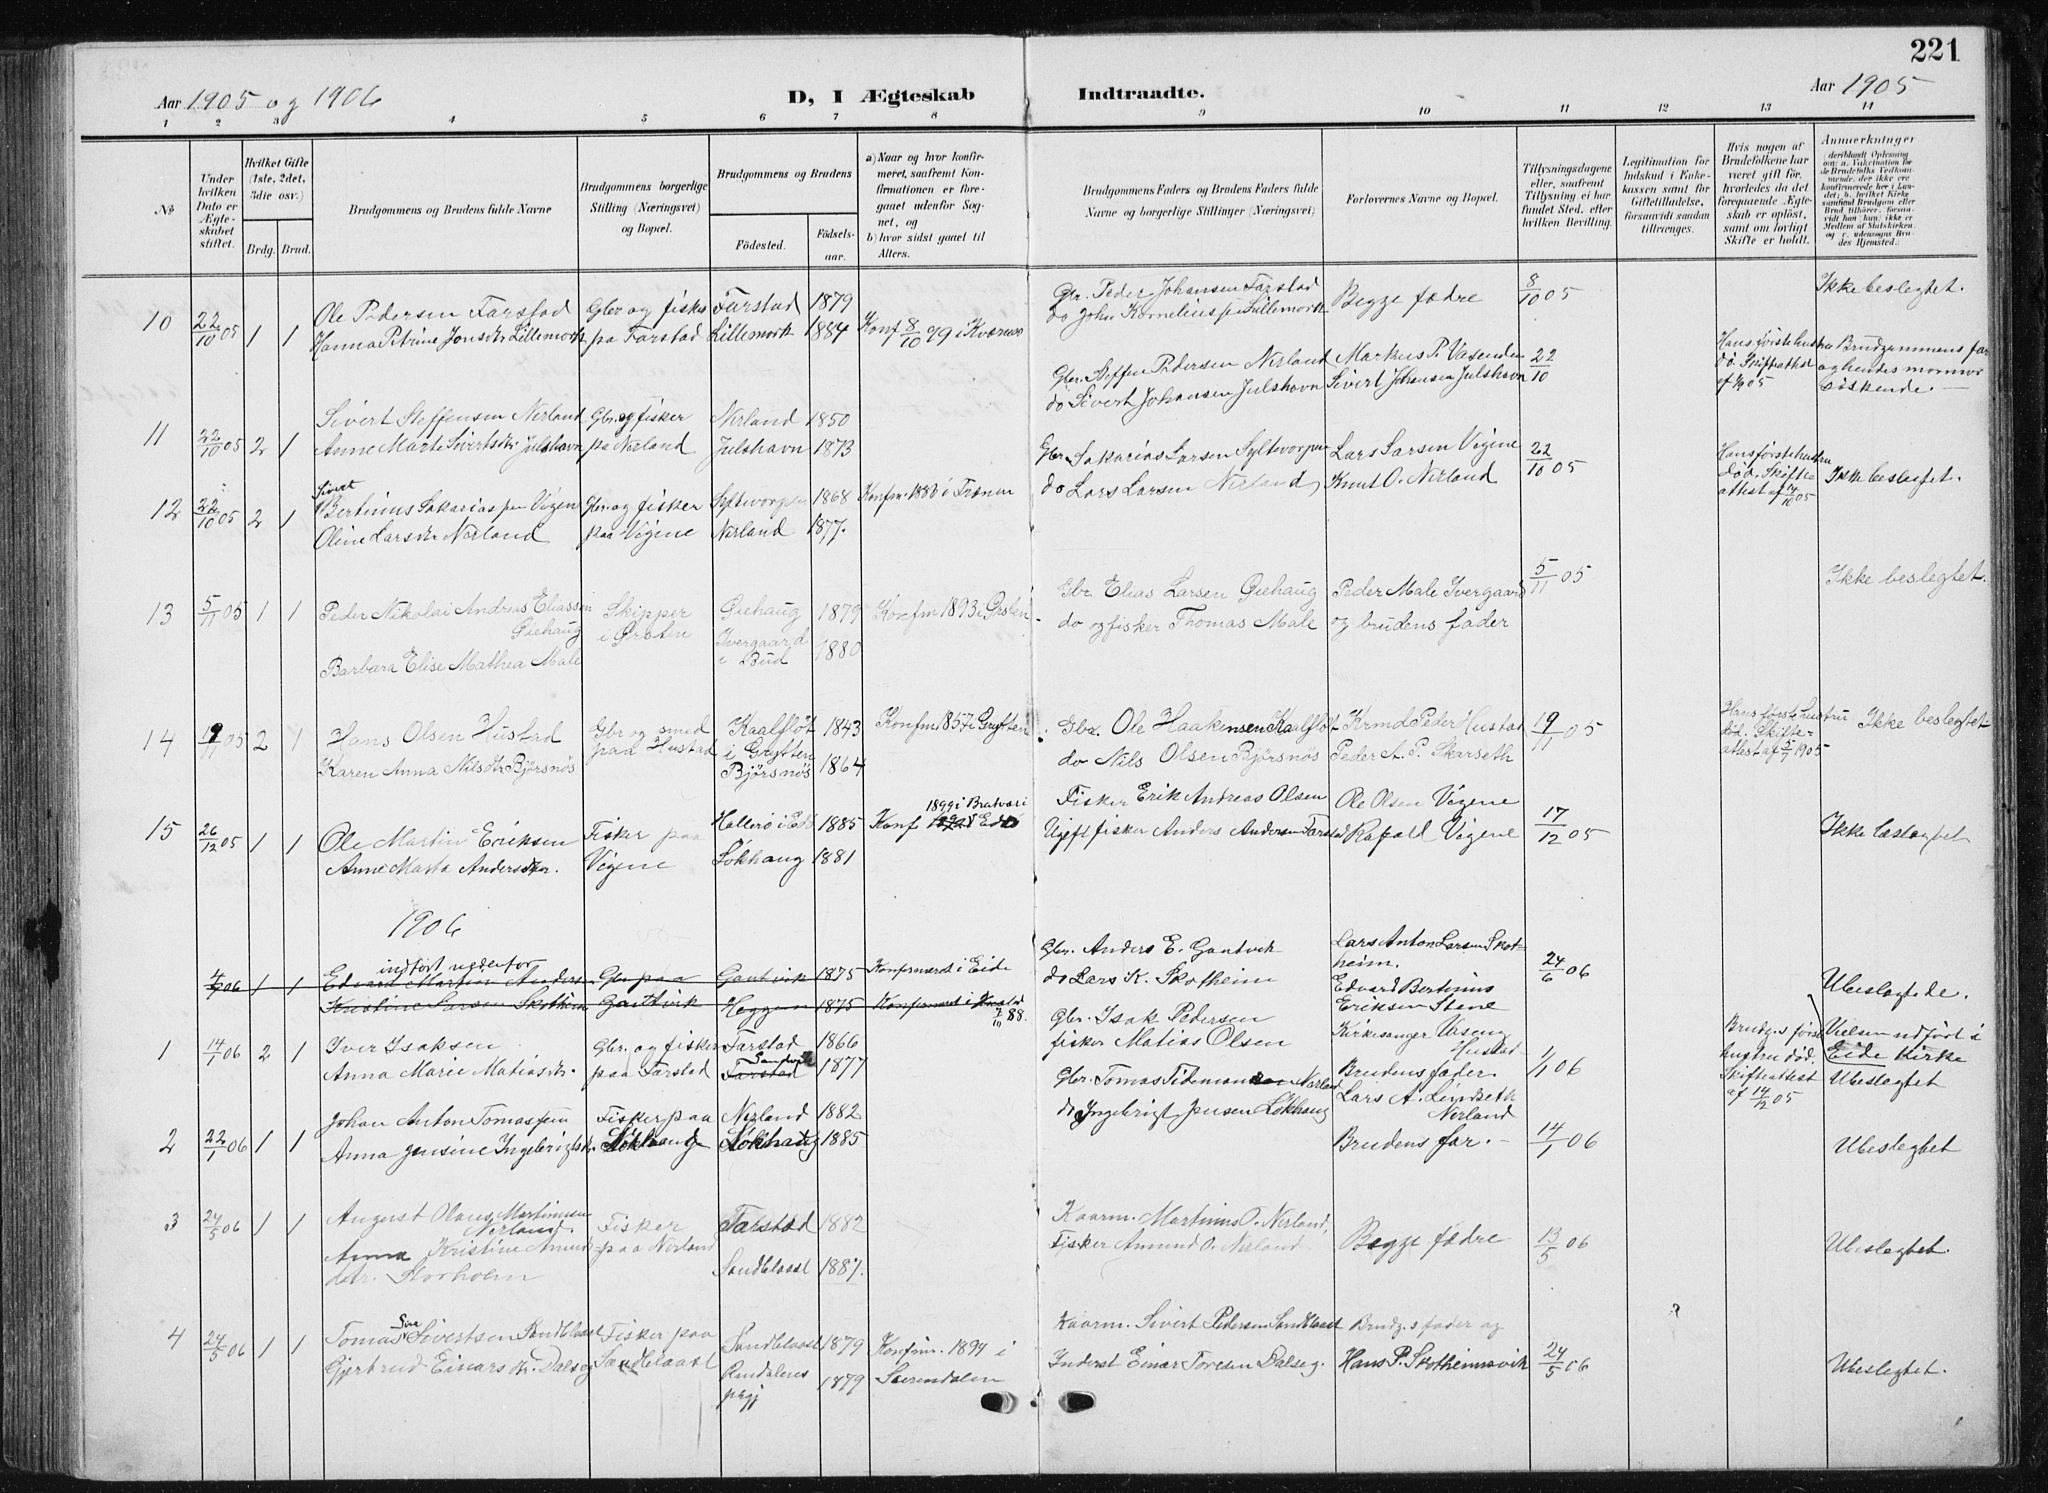 221
Aar 1905 og 1906
D, I Ægteskab Indtraadte.
Aar 1905
1 2 3 4 5 6 7 8 9 10 11 12 13 14
No
Under hvilken Dato er Ægteskabet stiftet.
Hvilket Gifte (1ste, 2det, 3die osv.)
Brdg. Brud.
Brudgommens og Brudens fulde Navne
Brudgommens borgerlige Stilling (Næringsvei) og Bopæl.
Brudgommens og Brudens
Fødested. Fødselsaar.
a) Naar og hvor konfirmeret, saafremt Konfirmationen er foregaaet udenfor Sognet, og
b) hvor sidst gaaet til Alters.
Brudgommens Faders og Brudens Faders fulde Navne og borgerlige Stillinger (Næringsvei)
Forlovernes Navne og Bopæl.
Tillysningsdagene eller, saafremt Tillysning ei har fundet Sted, efter hvilken Bevilling.
Legitimation for Indskud i Enkekassen samt for Giftetilladelse, forsaavidt saadan tiltrænges.
Hvis nogen af Brudefolkene har været gift før, hvorledes da det foregaaende Ægteskab er opløst, samt om lovligt Skifte er holdt.
Anmerkninger
10 22/10 05 1 1 Ole Pedersen Farstad Gbr og fisker Farstad 1879 Gbr. Peder Johansen Farstad Begge fædre 8/10 05 Ikke beslegtet.
Hanna Petrine Jonsdtr Lillemork paa Farstad Lillemork 1884 Konf 8/10 99 i Kvernes do John Korneliuspen Lillemork
11 22/10 05 2 1 Sivert Steffensen Nerland Gbr og fisker Nerland 1850 Gbr. Steffen Pedersen Nerland Markus P. Vasenden 22/10 Hans første hustru død. Skifteattest Brudgommens far og hendes mormor søskende.
Anne Marte Sivertsdtr Julshavn paa Nerland Julshavn 1873 do Sivert Johansen Julshavn Sivert Johansen Julshavn
12 22/10 05 2 1 Sivert Bertinus Sakariaspen Vigen Gbr. og fisker 1868 Konfm. 1883 i Frænen Gbr. Sakarias Larsen Lars Larsen Vigene 22/10 05 Hans første hustru død. Skifteattest af 14/10 05 Ikke beslegtet.
Oline Larsdtr Nerland paa Vigene Nerland 1877. do Lars Larsen Nerland, Knut O. Nerland
13 5/11 05 1 1 Peder Nikolai Andreas Eliassen Øiehaug Skipper i Ørsten Øiehaug 1879 Konfm 1893 i Ørsten Gbr. Elias Larsen Øiehaug Peder Male Ivergaard 5/11 05 Ikke beslegtet.
Barbara Elise Mathea Male Ivergaard i Bud 1880 do og fisker Thomas Male og brudens fader
14 19/11 05 2 1 Hans Olsen Hustad Gbr og smed Kaalfløt i Grytten 1843 Konfm 1857 i Grytten Gbr. Ole Haakensen Kaalfløt Krmd Peder Hustad 19/11 05 Hans første hustru død. Skifteattest af 5/7 1905 Ikke beslegtet
Karen Anna Nilsdtr Bjørsnøs paa Hustad Bjørsnøs 1864 do Nils Olsen Bjørsnøs Peder A. P. Skarseth
15 26/12 05 1 1 Ole Martin Eriksen Fisker paa Hallerø i Edø 1885 Konf 1899 i Bratvær i Edø Fisker Erik Andreas Olsen Ole Olsen Vigene 17/12 05 Ikke beslegtet
Anne Marta Andersdtr. Vigene Løkhaug 1881 Ugift fisker Anders Andersen Farstad Rafael Vigene
1906
indført nedenfor
06 1 1 Edvard Martin Anders Gbr paa Gautvik 1875 Konfirmeret i Eide Gbr. Anders E. Gautvik Lars Anton Larsen Skotheim. 24/6 06 Ubeslegtede.
Kristine Larsen Skotheim Gautvik Heggem 1875 Konfirmeret i 88. do Lars K. Skotheim Edvard Bertinus Eriksen Stene Vielsen udført i Eide kirke
1 14/1 06 2 1 Iver Isaksen Gbr. og fisker Farstad 1866 Gbr. Isak Pedersen Kirkesanger Vaseng Hustad 1/1 06 Brudg.s første hustru død. Skifteattest af 14/12 05 Ubeslegtet
Anna Marie Matiasdtr. paa Farstad Farstad Sandvik 1877 fisker Matias Olsen Brudens fader.
2 22/1 06 1 1 Johan Anton Tomassen Fisker paa Nerland 1882 Gbr. Tomas Nerland Lars A. Lindseth Nerland 14/1 06 Ubeslegtet
Anna Jensine Ingebrigtsdtr. Løkhaug Løkhaug 1885 do Ingebrigt Jensen Løkhaug Brudens far.
3 24/5 06 1 1 August Olaus Martinusen Nerland. Fisker Farstad 1882 Kaarm. Martinus O. Nerland, Begge fædre 13/5 06 Ubeslegtet.
Anna Kristine Amundsdtr. Storholm paa Nerland Sandblaast 1887. Fisker Amund O. Nerland.
4 24/5 06 1 1 Tomas Sivertsen Sandblaast Fisker paa Sandblaast 1879 Konfmr. 1894 i Kaarm. Sivert Pedersen Sandblaast Brudg.s fader og 24/5 06 ? Ubeslegtet.
Gjertrud Einarsdtr. Dalseg Sandblaast Rindalens prgj 1879 Surendalen Inderst Einar Toresen Dalseg. Hans P. Skotheimsvik